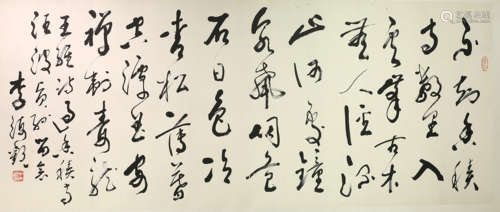 不知香積
寺數里入
雲峰古木
無人徑深
山何處鐘
泉聲咽危
石日色冷
青松薄暮
空潭曲安
禪制毒龍
王維詩過香積寺
留念
李